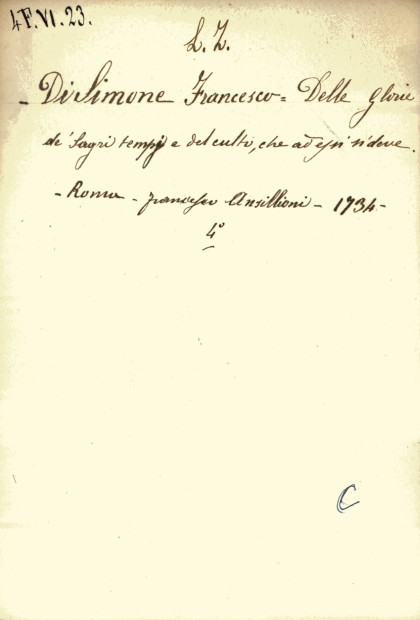 4 F. VI. 23.
L. Z.
- Di Simone Francesco = Delle glorie
de' sagri tempj e del culto, che ad essi si deve.
- Roma - Francesco Ansillioni - 1734 -
4°
C